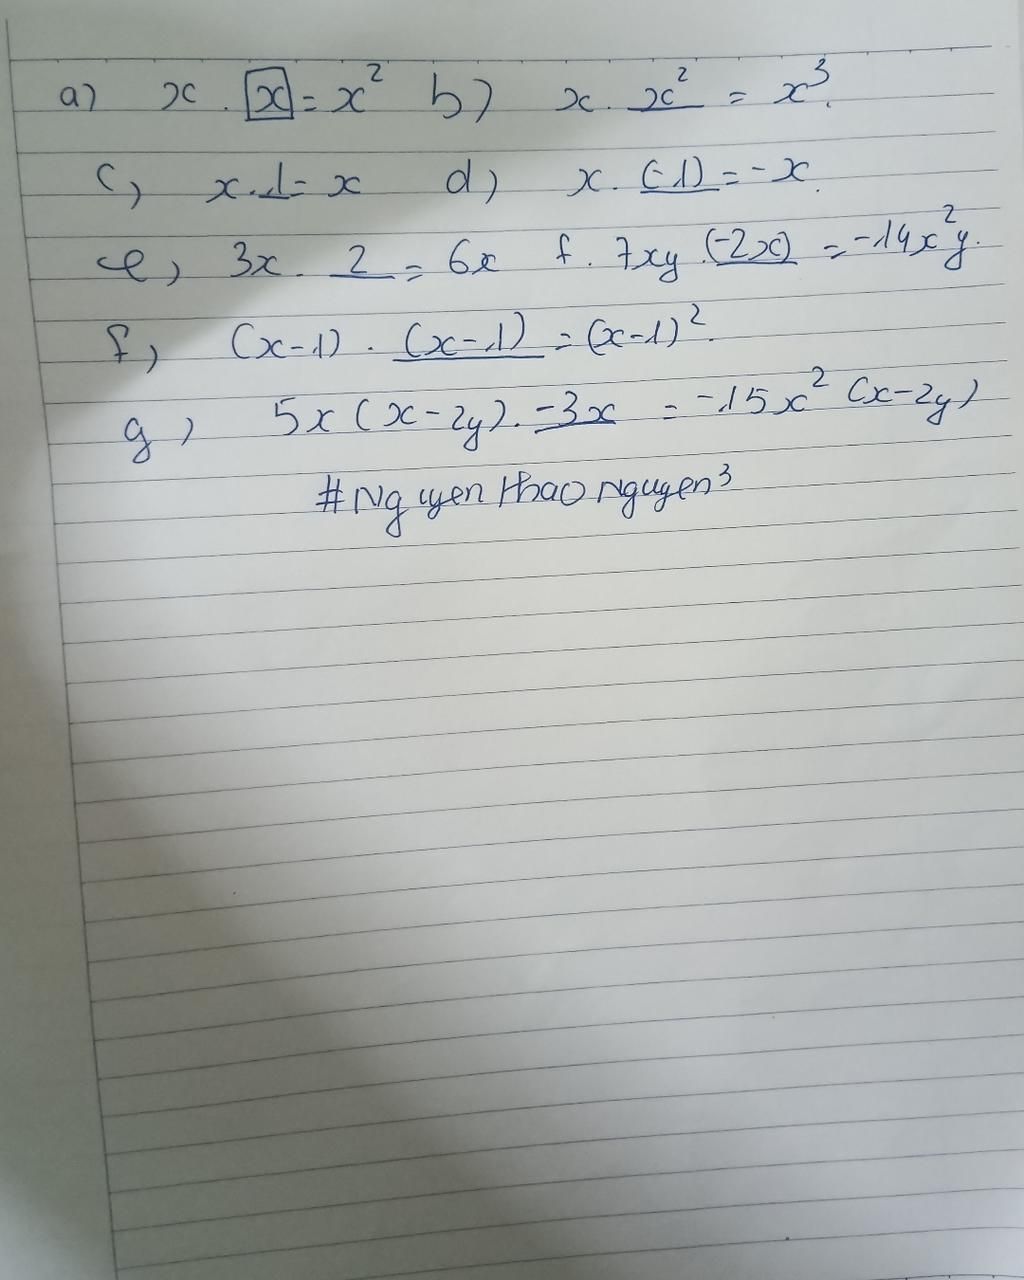 a) x . x = x² b) x . x² = x³.
c) x . 1 = x d) x . (-1) = -x.
e) 3x . 2 = 6x f. 7xy . (-2x) = -14x²y.
f) (x-1) . (x-1) = (x-1)².
g) 5x (x-2y) . -3x = -15x² (x-2y)
#Nguyen thao nguyen³